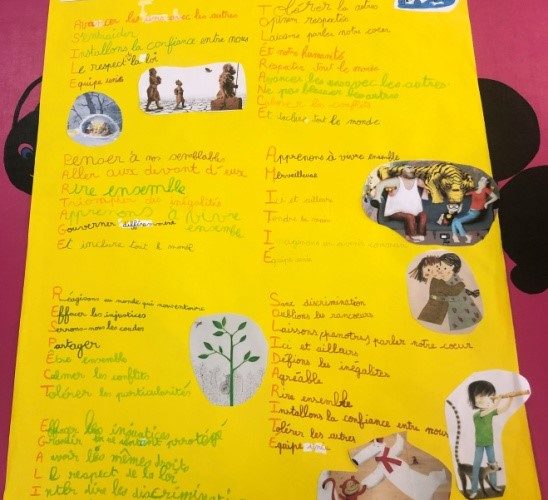 Avancer les uns avec les autres
S'entraider
Installons la confiance entre nous
Le respect de la loi
Equipe unie
Tolérer les autres
Opinion respectée
Laisser parler notre cœur
Et notre humanité
Respecter tout le monde
Avancer les uns avec les autres
Ne pas blesser les autres
Calmer les conflits
Et inclure tout le monde
Penser à nos semblables
Aller aux devant d'eux
Rire ensemble
Triompher des inégalités
Apprenons à vivre ensemble
Gouverner différemment
Et inclure tout le monde
Apprenons à vivre ensemble
Merveilleuse
Ici et ailleurs
Tendre la main
Imaginons un avenir commun
Équipe unie
Réagissons au monde qui nous entoure
Effacer les injustices
Serrons-nous les coudes
Partager
Être ensemble
Calmer les conflits
Tolérer les particularités
Sans discrimination
Oublions les rancœurs
Laissons parler notre cœur
Ici et ailleurs
Défions les inégalités
Agréable
Rire ensemble
Installons la confiance entre nous
Tolérer les autres
Equipe unie
Effacer les injustices
Grandir en se sentant protégé
Avoir les mêmes droits
Le respect de la loi
Interdire les discriminati